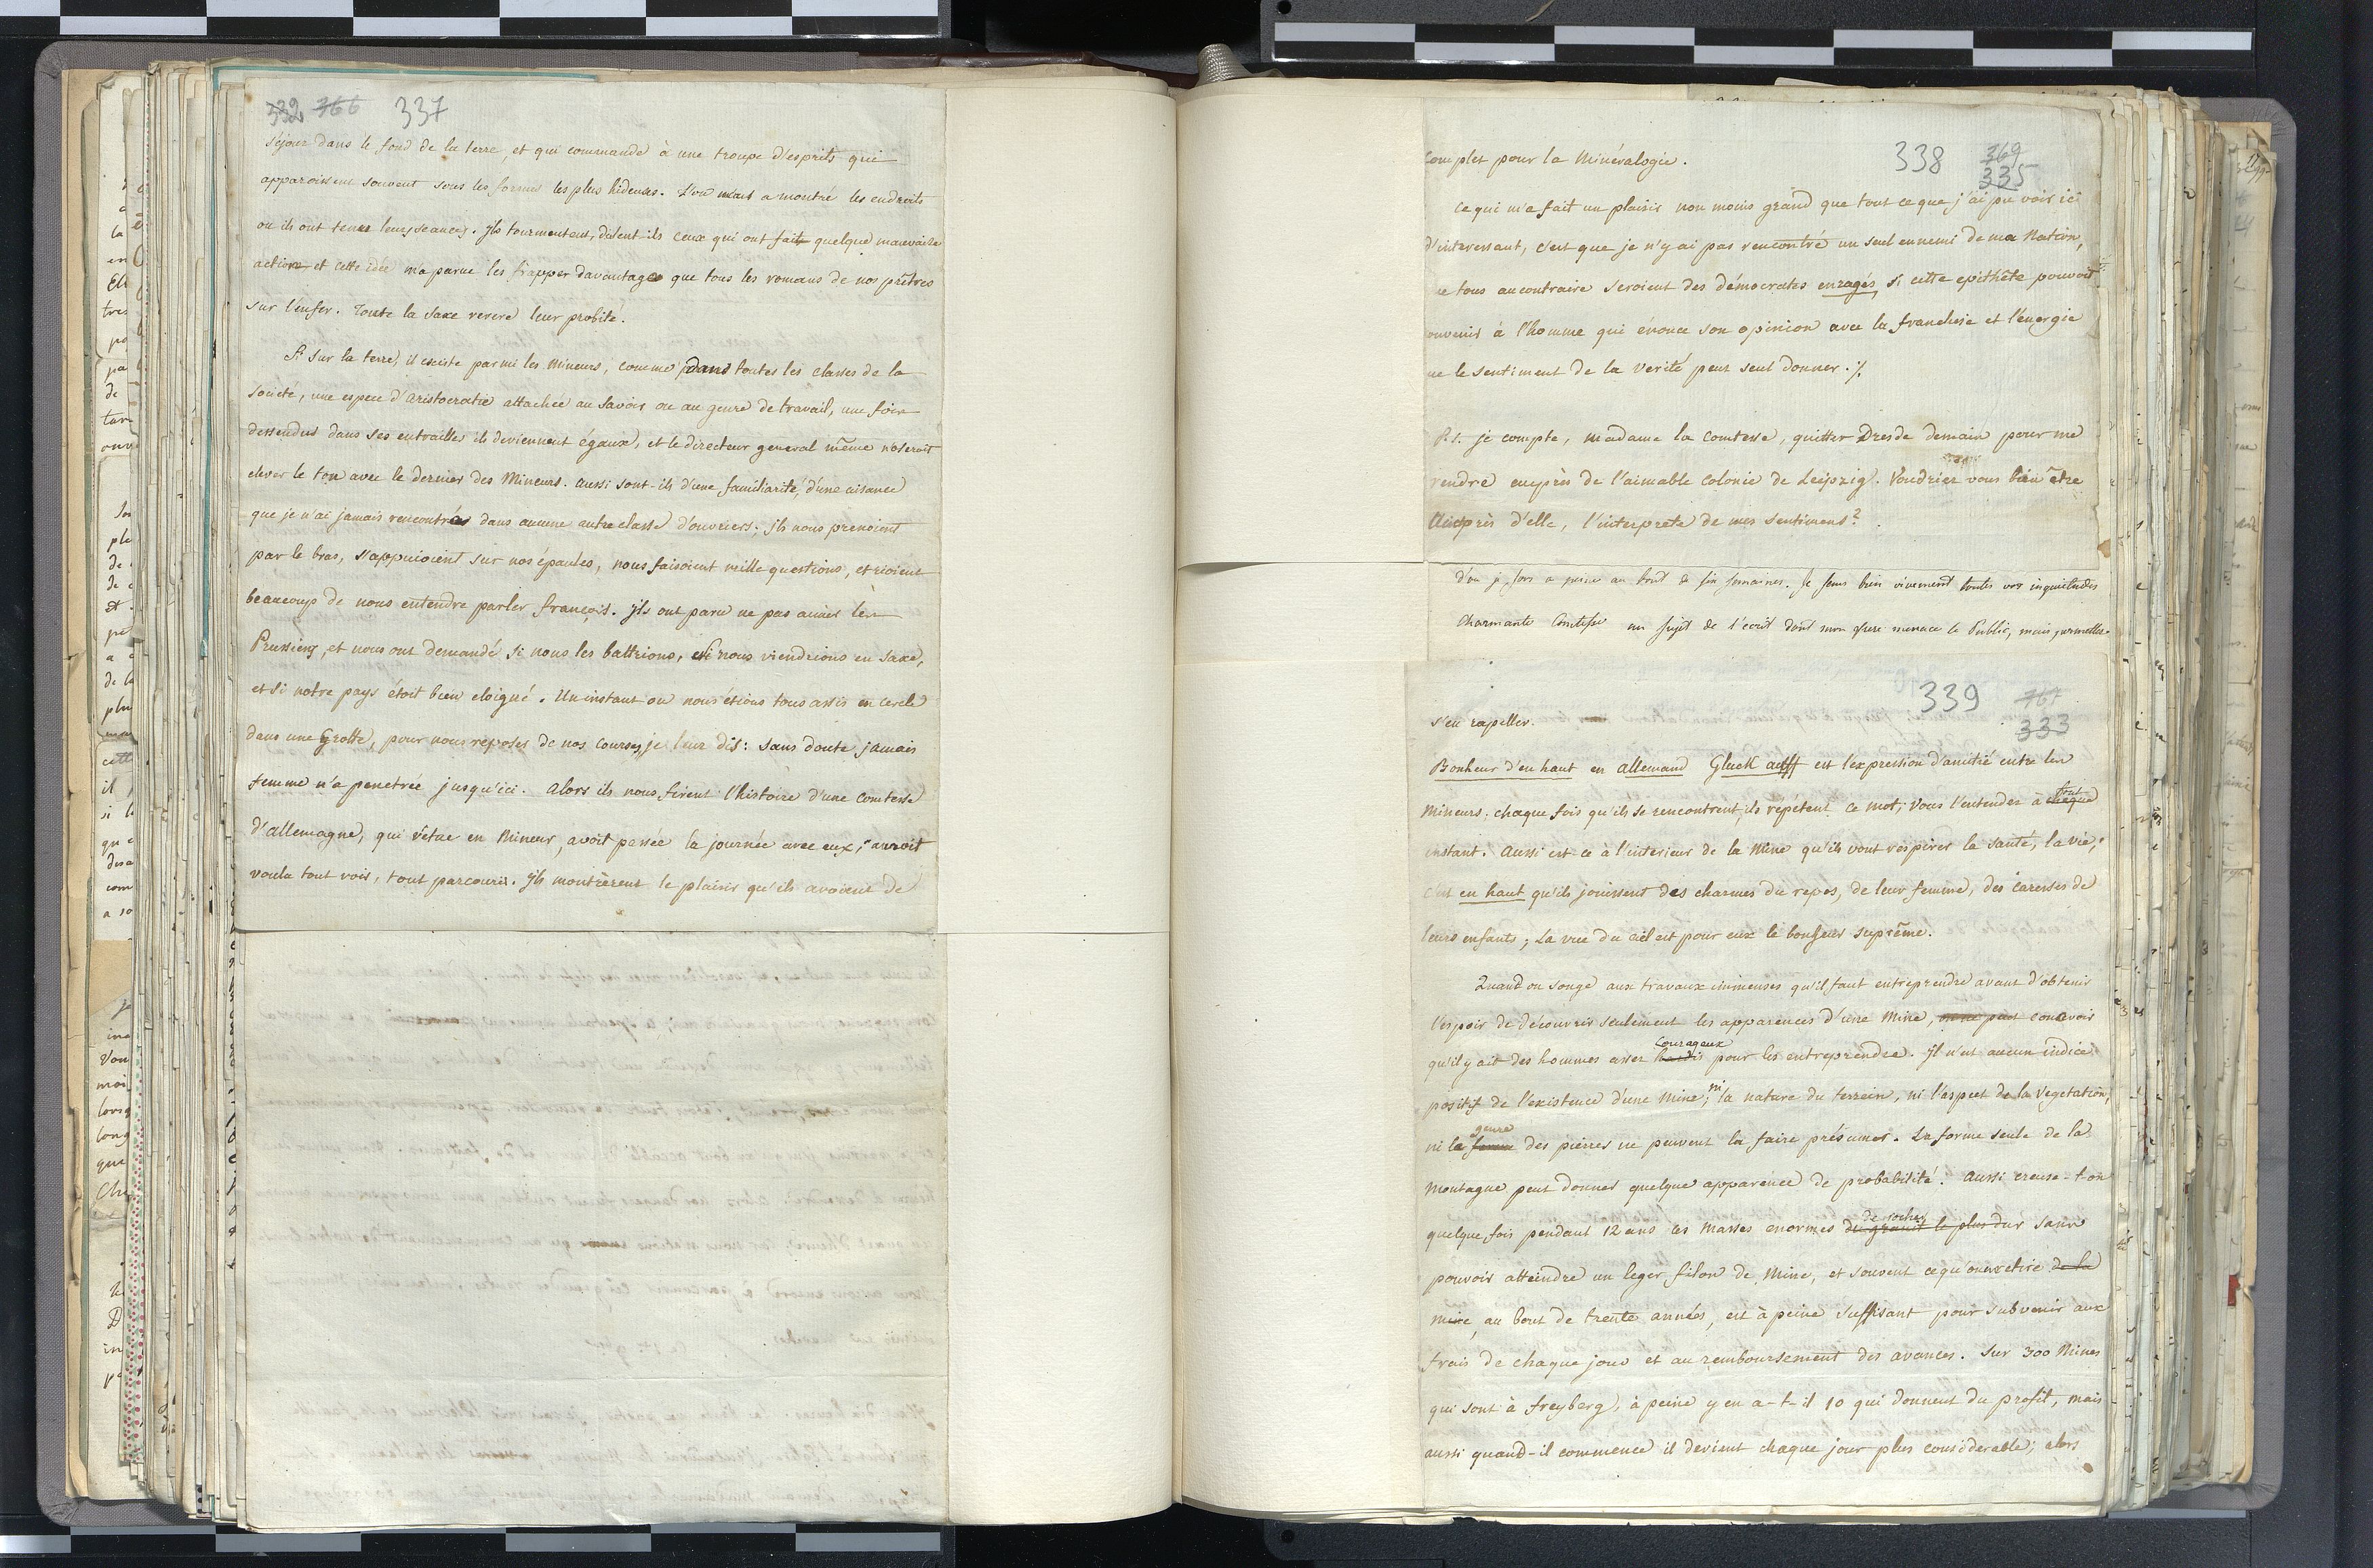 332 366 337
séjour dans le fond de la terre, et qui commande à une troupe d'esprits qui
apparoissent souvent sous les formes les plus hideuses. L'on m'a montré les endroits
ou ils ont tenu leurs seances. Ils tourmentent, disent-ils ceux qui ont fait quelque mauvaise
action et cette idée m'a parue les frapper davantage que tous les romans de nos prêtres
sur l'enfer. Toute la Saxe revere leur probité.
Si sur la terre, il existe parmi les Mineurs, comme dans toutes les classes de la
société, une espece d'aristocratie attachée au savoir ou au genre de travail, une fois
dessendus dans ses entrailles ils deviennent égaux, et le directeur general même n'oseroit
elever le ton avec le dernier des Mineurs. aussi sont-ils d'une familiarité, d'une aisance
que je n'ai jamais rencontrées dans aucune autre classe d'ouvriers; ils nous prenoient
par le bras, s'appuioient sur nos épaules, nous faisoient mille questions, et rioient
beaucoup de nous entendre parler françois. ils ont paru ne pas aimer les
Prussiens, et nous ont demandé si nous les battrions, si nous viendrions en Saxe,
et si notre pays étoit bien eloigné. Un instant ou nous étions tous assis en cercle
dans une Grotte, pour nous reposer de nos courses, je leur dis: sans doute jamais
femme n'a penetrée jusqu'ici. Alors ils nous firent l'histoire d'une Comtesse
d'allemagne, qui vêtue en Mineur, avoit passée la journée avec eux, avoit
voulu tout voir, tout parcourir. Ils montrèrent le plaisir qu'ils avoient de
338 369
335
complet pour la Minéralogie.
Ce qui m'a fait un plaisir non moins grand que tout ce que j'ai pu voir ici
d'interessant, c'est que je n'y ai pas rencontré un seul ennemi de ma Nation,
ue tous au contraire seroient des démocrates enragés, si cette epithête pouvoit
onvenir à l'homme qui énonce son opinion avec la franchise et l'énergie
ue le sentiment de la verité peut seul donner. ./.
P.S. je compte, Madame la Comtesse, quitter Dresde demain pour me
rendre auprès de l'aimable Colonie de Leipzig. Voudriez vous bien être
Auprès d'elle, l'interprete de mes sentimens?
d'ou je sors a peine au bout de six semaines. Je sens bien vivement toutes vos inquietudes
Charmante Comtesse au sujet de l'écrit dont mon frere menace le Public, mais permettez
339 367
333
s'en rapeller.
Bonheur d'en haut en allemand Gluck auff est l'expression d'amitié entre les
Mineurs; chaque fois qu'ils se rencontrent, ils repétent ce mot; vous l'entendez à chaque
tout
instant. Aussi est-ce à l'interieur de la Mine qu'ils vont respirer la santé, la vie;
C'est en haut qu'ils jouissent des charmes du repos, de leur femme, des caresses de
leurs enfants; La vue du ciel est pour eux le bonheur suprême.
Quand on songe aux travaux immenses qu'il faut entreprendre avant d'obtenir
l'espoir de découvrir seulement les apparences d'une Mine, peut concevoir
Courageux
qu'il y ait des hommes assez hardis pour les entreprendre. Il n'est aucun indice
positif de l'existence d'une Mine; ni la nature du terrein, ni l'aspect de la Vegetation,
genre
ni la forme des pierres ne peuvent la faire présumer. La forme seule de la
Montagne peut donner quelque apparence de probabilité. Aussi creuse-t-on
de rocher
quelque fois pendant 12 ans les Masses enormes du granit le plus dur sans
pouvoir atteindre un leger filon de Mine, et souvent ce qu'on en retire de la
Mine, au bout de trente années, est à peine suffisant pour subvenir aux
frais de chaque jour et au remboursement des avances. Sur 300 Mines
qui sont à Freyberg, à peine y en a-t-il 10 qui donnent du profit, mais
aussi quand-il commence il devient chaque jour plus considerable; alors